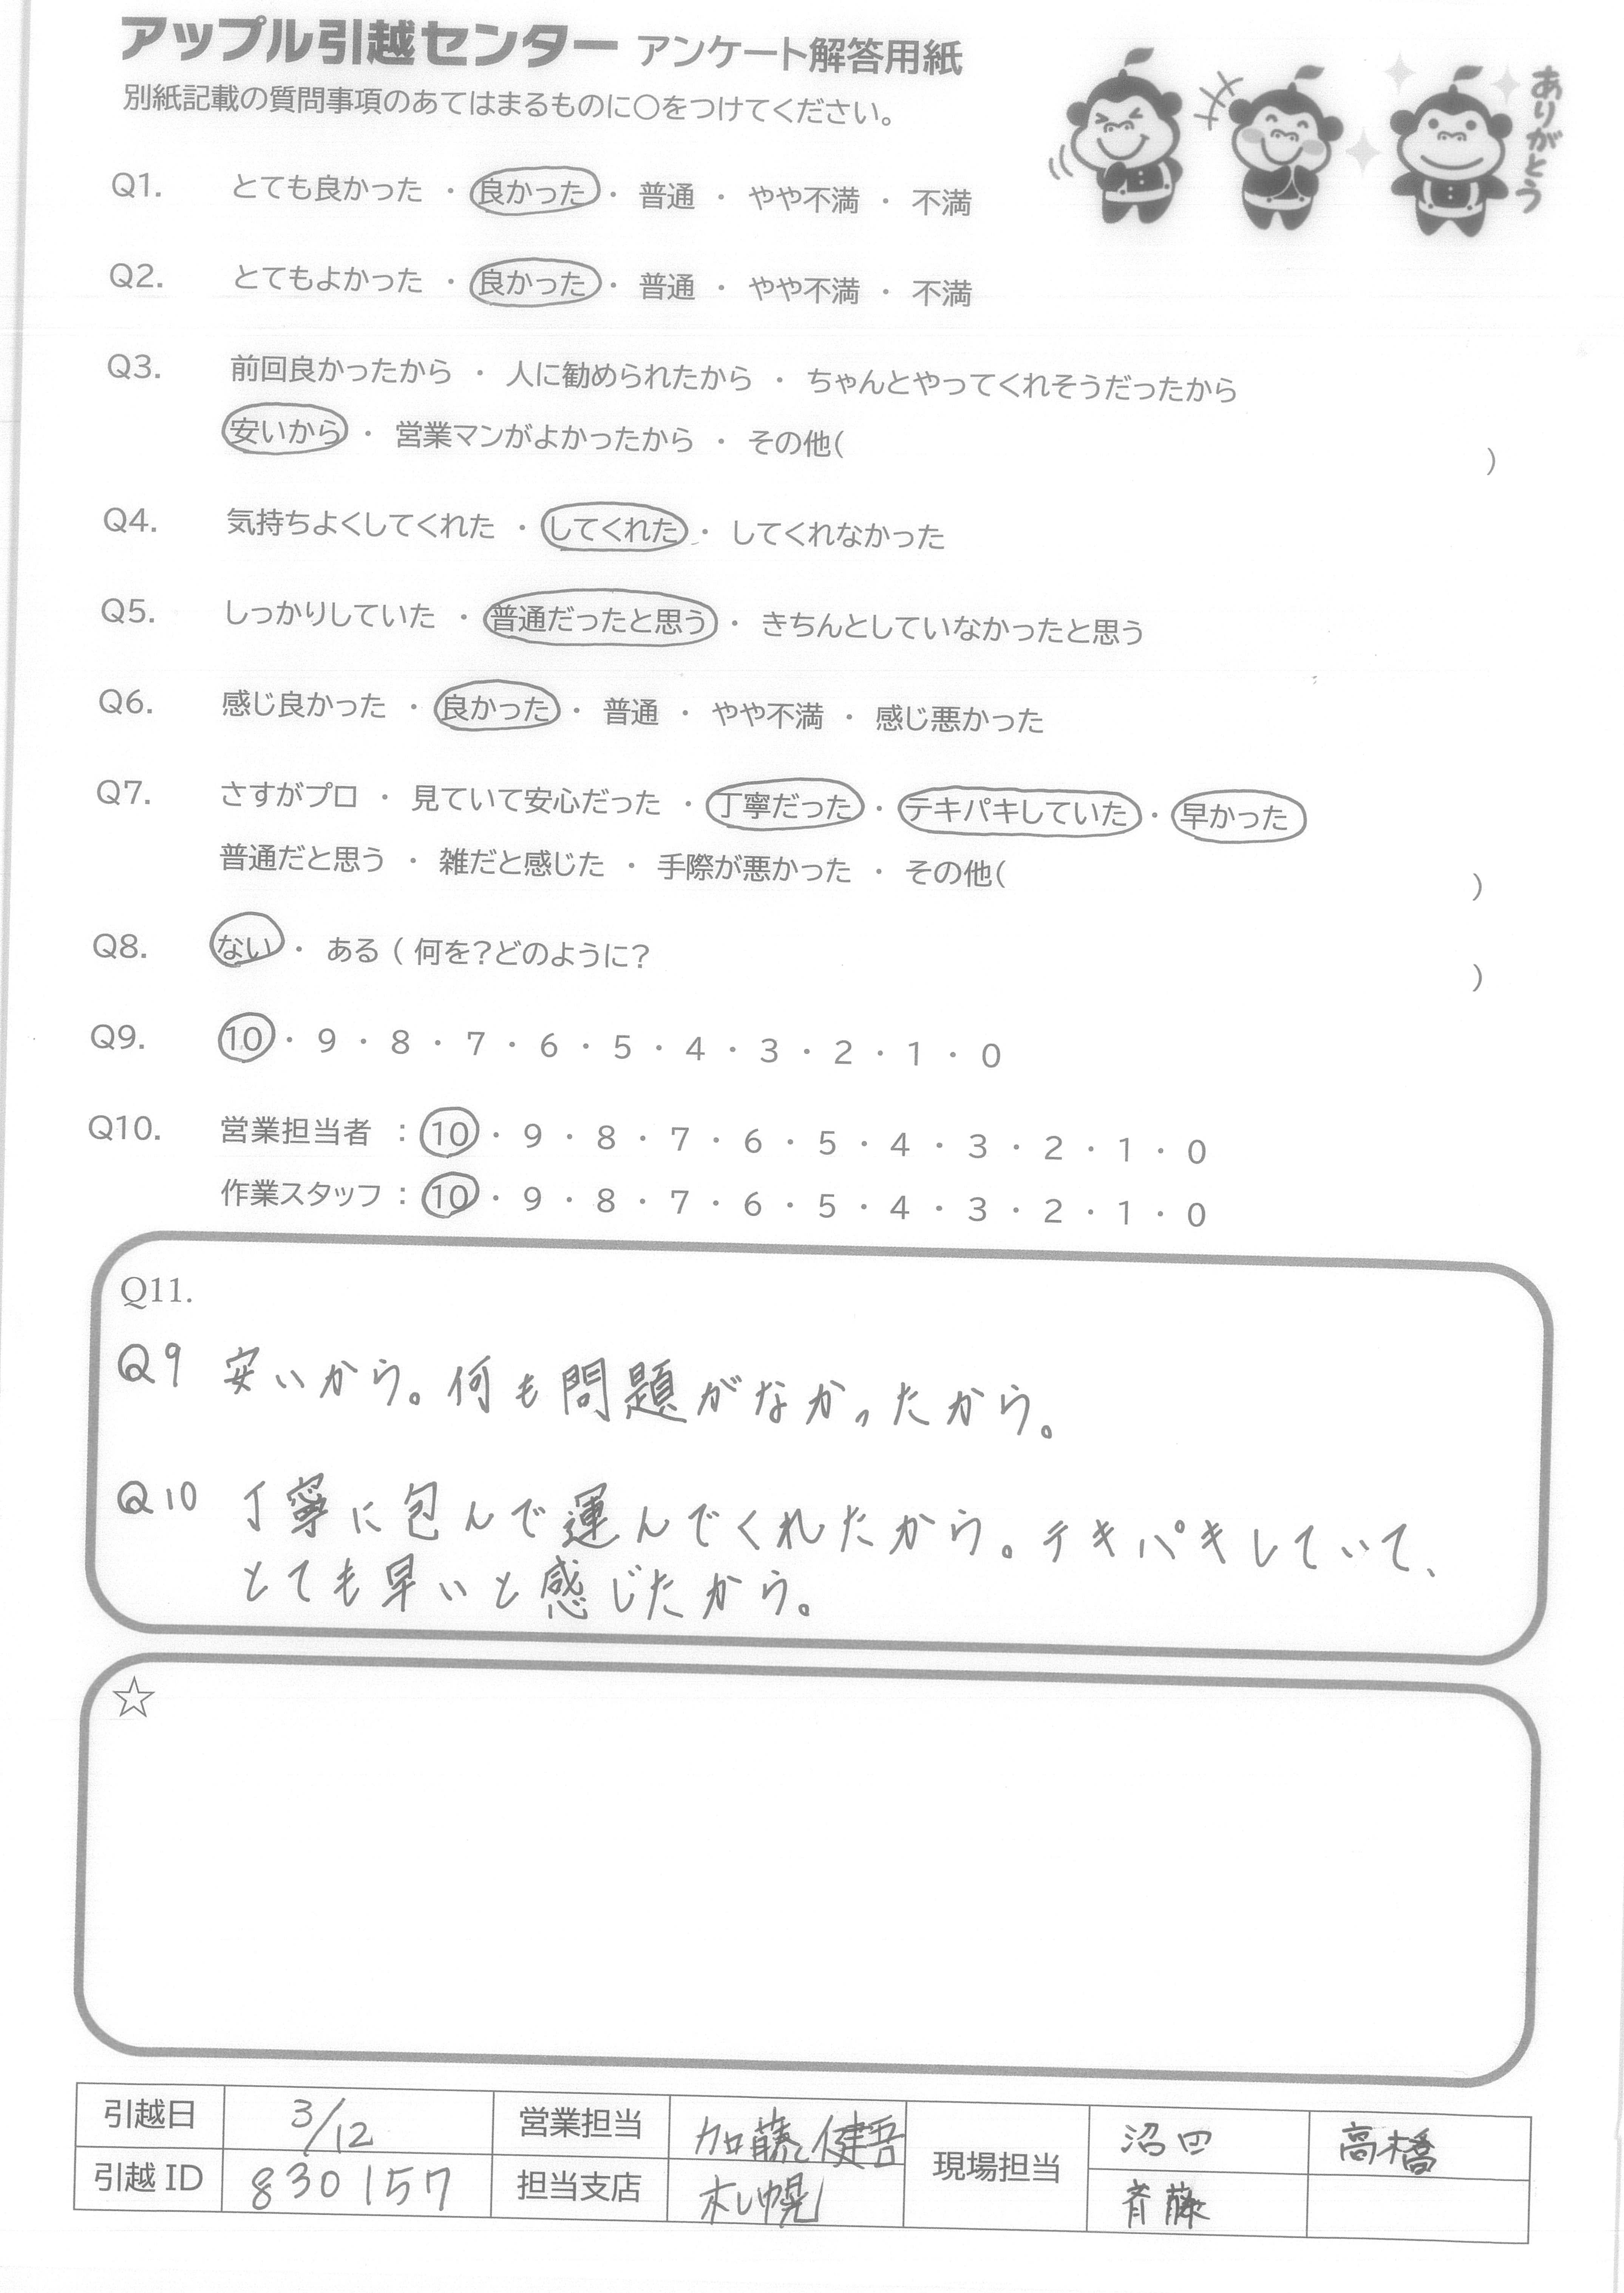 アップル引越センター アンケート解答用紙
別紙記載の質問事項のあてはまるものに〇をつけてください。
ありがとう
Q1. とても良かった ・ 良かった ・ 普通 ・ やや不満 ・ 不満
Q2. とてもよかった ・ 良かった ・ 普通 ・ やや不満 ・ 不満
Q3. 前回良かったから ・ 人に勧められたから ・ ちゃんとやってくれそうだったから
安いから ・ 営業マンがよかったから ・ その他( )
Q4. 気持ちよくしてくれた ・ してくれた ・ してくれなかった
Q5. しっかりしていた ・ 普通だったと思う ・ きちんとしていなかったと思う
Q6. 感じ良かった ・ 良かった ・ 普通 ・ やや不満 ・ 感じ悪かった
Q7. さすがプロ ・ 見ていて安心だった ・ 丁寧だった ・ テキパキしていた ・ 早かった
普通だと思う ・ 雑だと感じた ・ 手際が悪かった ・ その他( )
Q8. ない ・ ある ( 何を?どのように? )
Q9. 10 ・ 9 ・ 8 ・ 7 ・ 6 ・ 5 ・ 4 ・ 3 ・ 2 ・ 1 ・ 0
Q10. 営業担当者 : 10 ・ 9 ・ 8 ・ 7 ・ 6 ・ 5 ・ 4 ・ 3 ・ 2 ・ 1 ・ 0
作業スタッフ : 10 ・ 9 ・ 8 ・ 7 ・ 6 ・ 5 ・ 4 ・ 3 ・ 2 ・ 1 ・ 0
Q11.
Q9 安いから。何も問題がなかったから。
Q10 丁寧に包んで運んでくれたから。テキパキしていて、
とても早いと感じたから。
☆
引越日 3/12 営業担当 加藤健吾 現場担当 沼田 高橋
引越ID 830157 担当支店 札幌 斉藤